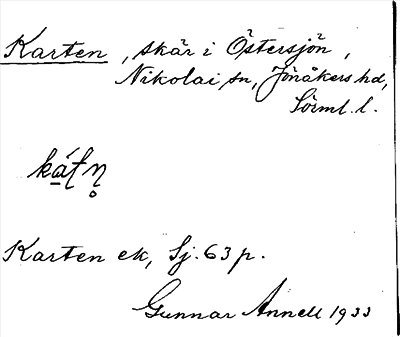 Karten, skär i Östersjön,
Nikolai sn, Jönåkers hd,
Sörml. l.
Karten ek, Sj. 63 p.
Gunnar Annell 1933